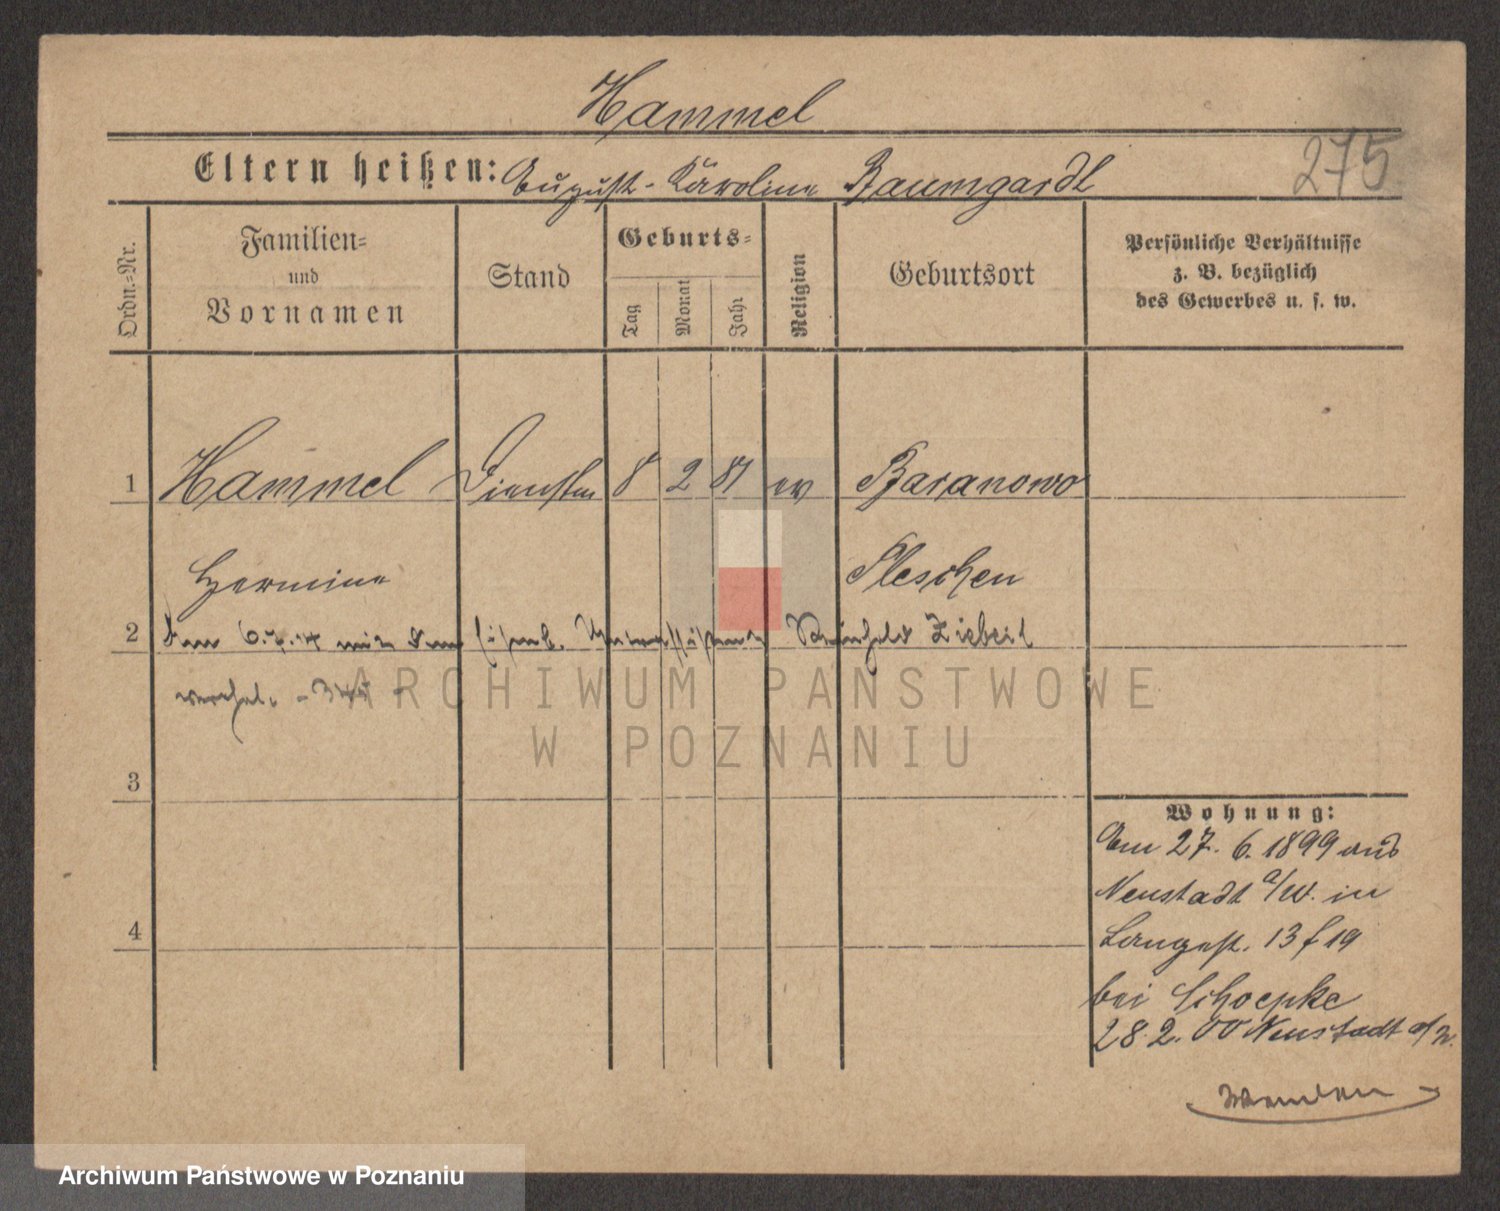 Hammel
Eltern heißen: August - Karoline Baumgardt
275
Ordn.-Nr.
Familien- und Vornamen
Stand
Geburts-
Tag
Monat
Jahr
Religion
Geburtsort
Persönliche Verhältnisse
z. B. bezüglich
des Gewerbes u. s. w.
1 Hammel 8 2 81 ev Baranowo
Hermine Pleschen
2 mit dem Ziebeil
verehel.
ARCHIWUM PAŃSTWOWE
W POZNANIU
3
4
Wohnung:
Am 27. 6. 1899 aus
Neustadt a/W. in
Langestr. 13 f 19
bei Schoepke
28. 2. 00 Neustadt a/W.
Wenden
Archiwum Państwowe w Poznaniu